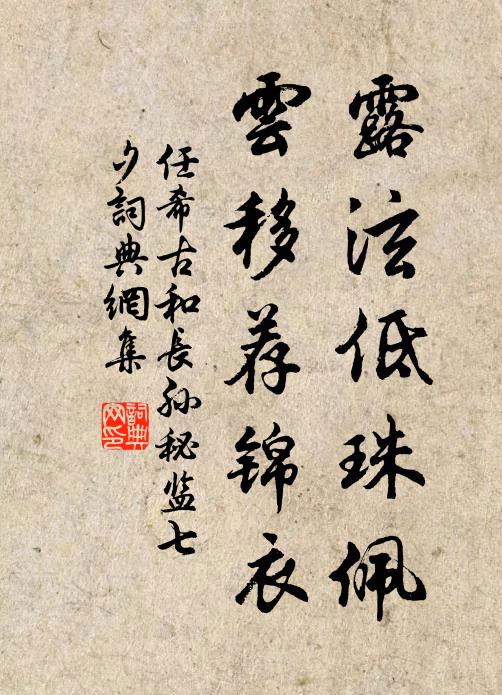 露泫低珠佩
雲移荐锦衣
任希古和長孙秘监七
夕詞典網集
詞典网印